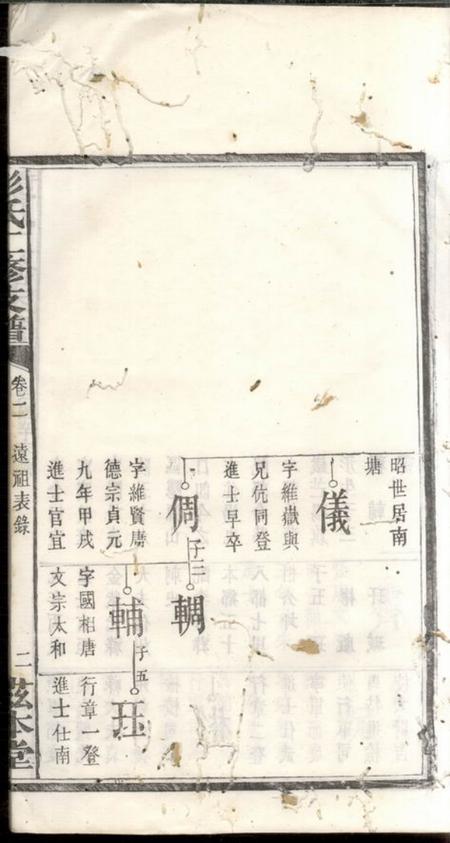 昭世居南
塘
儀
字維嶽與
兄伉同登
進士早卒
倜
子三
字維賢唐
德宗貞元
九年甲戌
進士官宜
輖
輔
子五
字國相唐
文宗太和
玨
行章一登
進士仕南
彭氏二修支譜
卷二
遠祖表錄
二